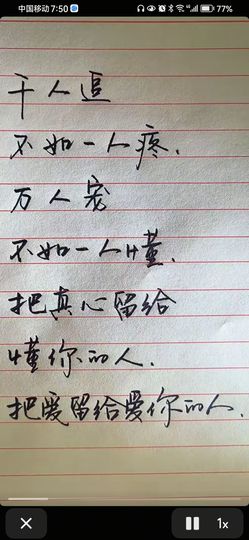 中国移动 7:50 77%
千人追
不如一人疼.
万人宠
不如一人懂.
把真心留给
懂你的人.
把爱留给爱你的人.
1x